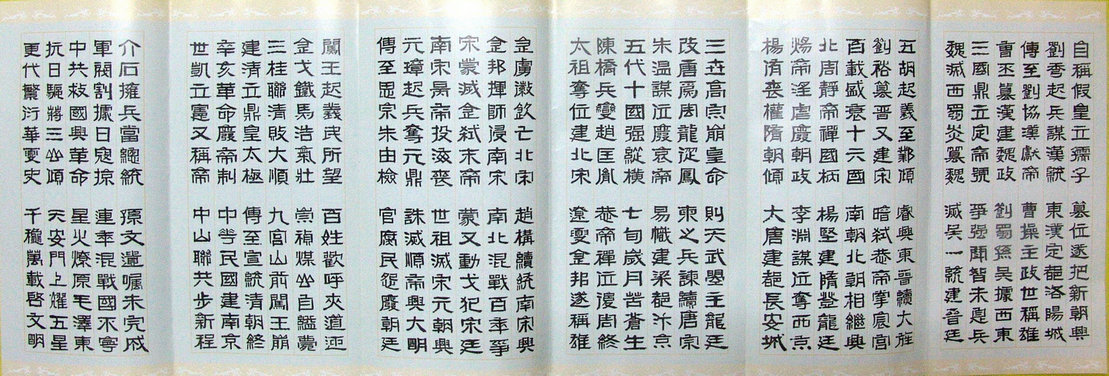 自稱假皇立孺子 篡位遂把新朝興
劉秀起兵謀漢統 東漢定都洛陽城
傳至劉協漢獻帝 曹操主政世稱雄
曹丕篡漢建魏政 劉蜀孫吳據西東
三國鼎立定帝號 爭強鬪智未息兵
魏滅西蜀炎篡魏 滅吳一統建晉廷
五胡起義至鄴傾 睿興東晉續大旌
劉裕篡晉又建宋 暗弑恭帝掌宸宮
百載盛衰十六國 南朝北朝相繼興
北周靜帝禪國柄 楊堅建隋登龍廷
煬帝淫虐廢朝政 李淵謀位奪西京
楊侑喪權隋朝傾 大唐建都長安城
三立高宗崩皇命 則天武曌主龍廷
改唐爲周龍從鳳 柬之兵諫續唐宗
朱温謀位廢哀帝 易幟建梁都汴京
五代十國强縱橫 七旬歲月苦蒼生
陳橋兵變趙匡胤 恭帝禪位後周終
太祖奪位建北宋 遼金邦遂稱雄
金虜徽欽亡北宋 趙構續統南宋興
金邦揮師侵南宋 南北混戰百年爭
宋蒙滅金弑末帝 蒙又動戈犯宋廷
南宋昺帝投海喪 世祖滅宋元朝興
元璋起兵奪元鼎 誅滅順帝興大明
傳至思宗朱由檢 官腐民怨廢朝廷
闖王起義民所望 百姓歡呼夾道迎
金戈鐵馬浩氣壯 崇禎煤山自縊薨
三桂聯清敗大順 九宮山前闖王崩
建清立鼎皇太極 傳至宣統清朝終
辛亥革命廢帝制 中華民國建南京
世凱立憲又稱帝 中山聯共步新程
介石擁兵當總統 孫文遺囑未完成
軍閥割據日寇掠 連年混戰國不寧
中共救國興革命 星火燎原毛澤東
抗日驅蔣三山頌 天安門上耀五星
更代繁衍華夏史 千穐萬載啓文明